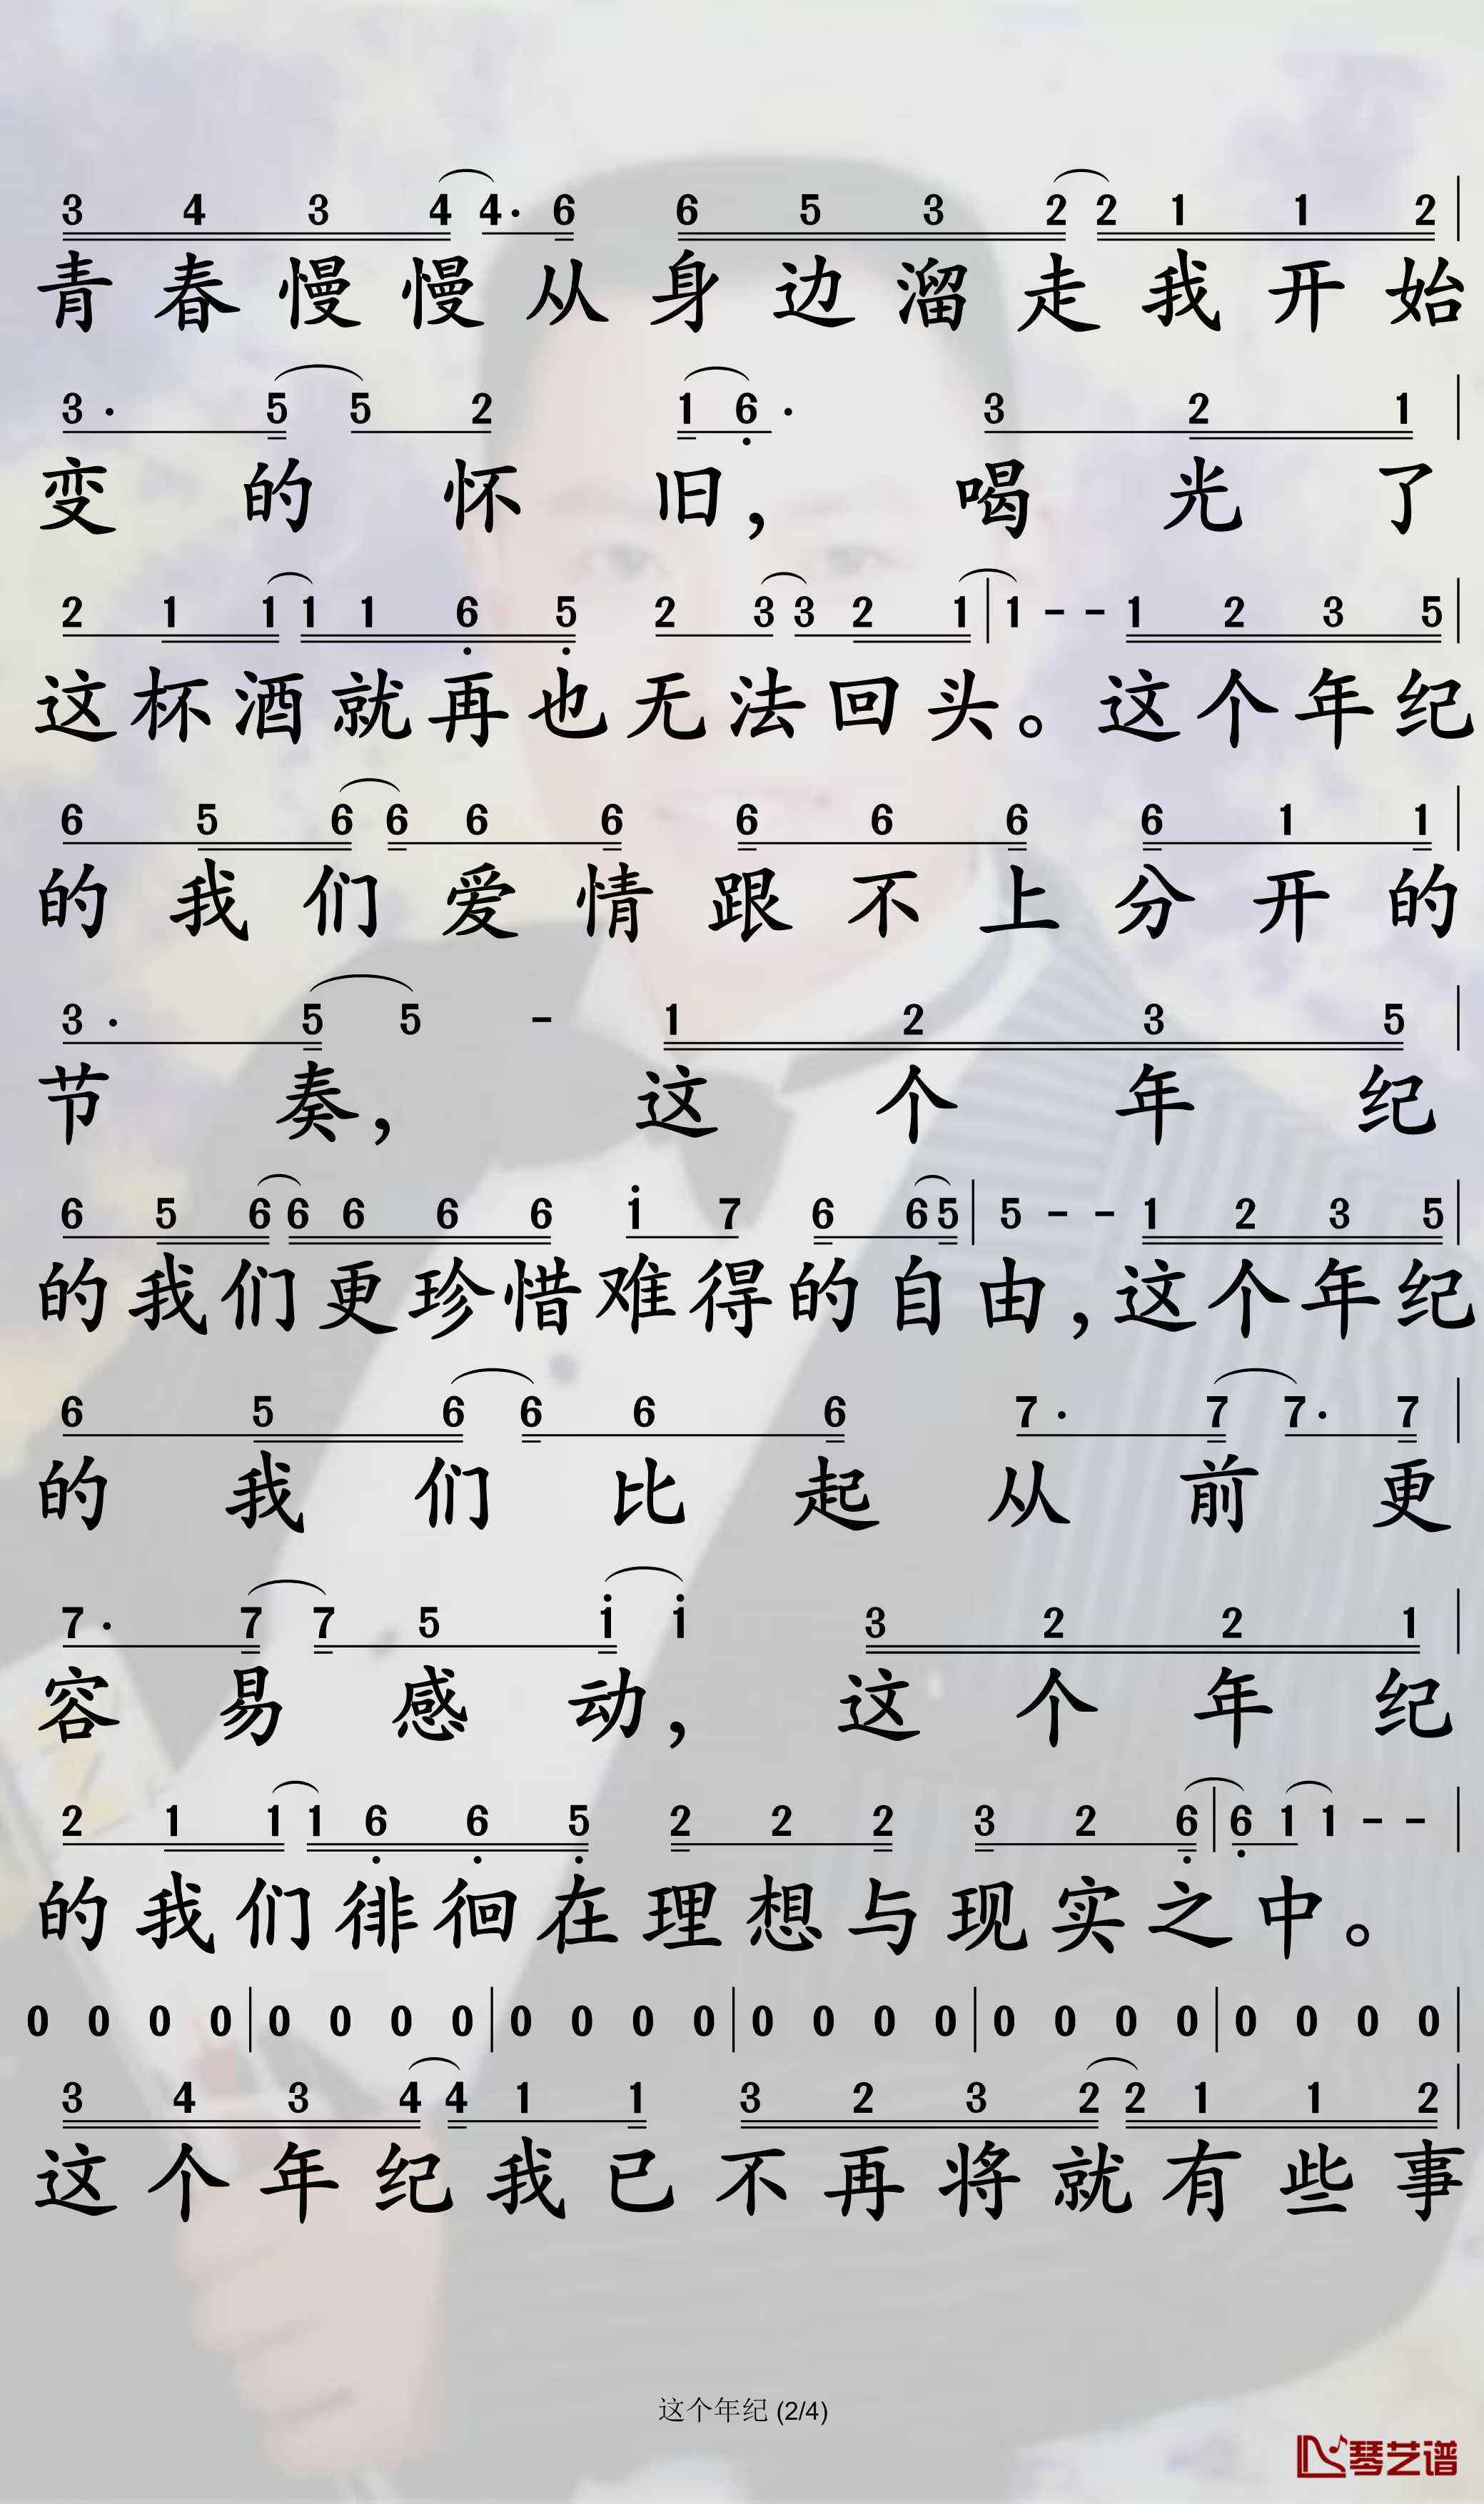 3 4 3 4 4· 6 6 5 3 2 2 1 1 2
青春慢慢从身边溜走我开始
3· 5 5 2 1 6· 3 2 1
变的怀旧，喝光了
2 1 1 1 1 6 5 2 3 3 2 1 | 1 - - 1 2 3 5
这杯酒就再也无法回头。这个年纪
6 5 6 6 6 6 6 6 6 6 1 1
的我们爱情跟不上分开的
3· 5 5 - 1 2 3 5
节奏，这个年纪
6 5 6 6 6 6 6 i 7 6 6 5 | 5 - - 1 2 3 5
的我们更珍惜难得的自由，这个年纪
6 5 6 6 6 6 7· 7 7· 7
的我们比起从前更
7· 7 7 5 i i 3 2 2 1
容易感动，这个年纪
2 1 1 1 6 6 5 2 2 2 3 2 6 | 6 1 1 - -
的我们徘徊在理想与现实之中。
0 0 0 0 | 0 0 0 0 | 0 0 0 0 | 0 0 0 0 | 0 0 0 0 | 0 0 0 0
3 4 3 4 4 1 1 3 2 3 2 2 1 1 2
这个年纪我已不再将就有些事
这个年纪 (2/4)
琴艺谱